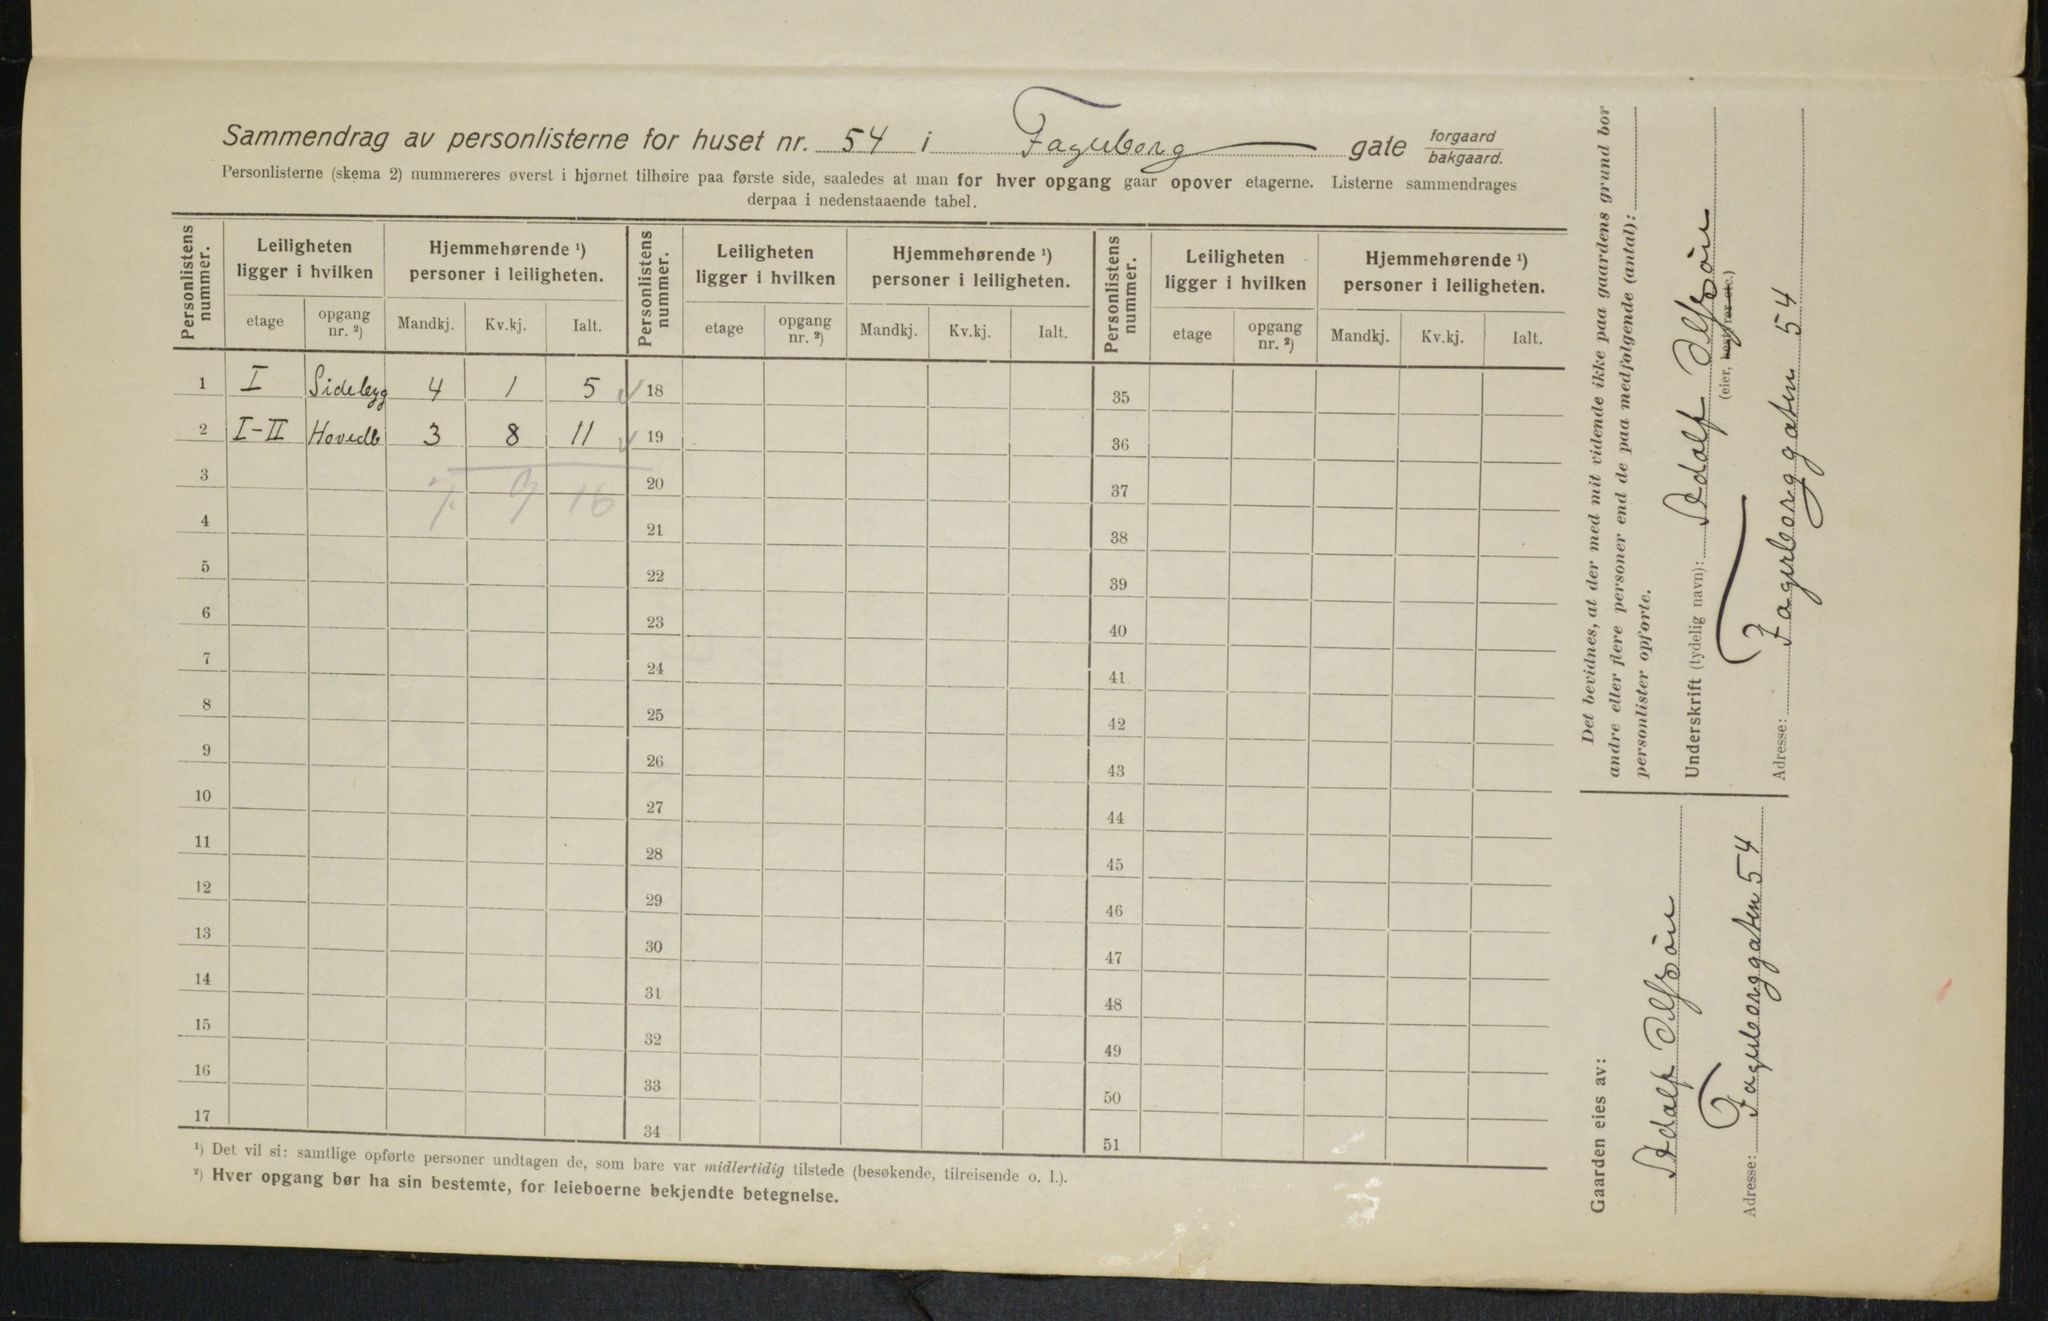 Sammendrag av personlisterne for huset nr. 54 i Fagerborg gate forgaard bakgaard.
Personlisterne (skema 2) nummereres øverst i hjørnet tilhøire paa første side, saaledes at man for hver opgang gaar opover etagerne. Listerne sammendrages
derpaa i nedenstaaende tabel.
Personlistens nummer. Leiligheten ligger i hvilken Hjemmehørende ¹) personer i leiligheten. Personlistens nummer. Leiligheten ligger i hvilken Hjemmehørende ¹) personer i leiligheten. Personlistens nummer. Leiligheten ligger i hvilken Hjemmehørende ¹) personer i leiligheten.
etage opgang nr. ²) Mandkj. Kv.kj. Ialt. etage opgang nr. ²) Mandkj. Kv.kj. Ialt. etage opgang nr. ²) Mandkj. Kv.kj. Ialt.
1 I Sidebyg 4 1 5 18 35
2 I-II Hovedb 3 8 11 19 36
3 7. 9 16 20 37
4 21 38
5 22 39
6 23 40
7 24 41
8 25 42
9 26 43
10 27 44
11 28 45
12 29 46
13 30 47
14 31 48
15 32 49
16 33 50
17 34 51
¹) Det vil si: samtlige opførte personer undtagen de, som bare var midlertidig tilstede (besøkende, tilreisende o. l.).
²) Hver opgang bør ha sin bestemte, for leieboerne bekjendte betegnelse.
Det bevidnes, at der med mit vidende ikke paa gaardens grund bor
andre eller flere personer end de paa medfølgende (antal):
personlister opførte.
Underskrift (tydelig navn): Adolf
(eier, bestyrer etc.)
Adresse: Fagerborggaten 54
Gaarden eies av:
Adolf
Adresse: Fagerborggaten 54